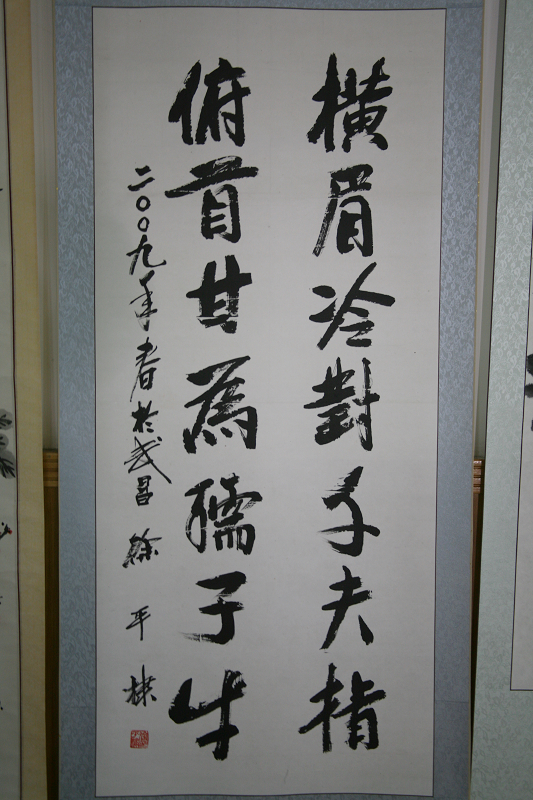 橫眉冷對千夫指
俯首甘為孺子牛
二〇〇九年春於武昌 徐平